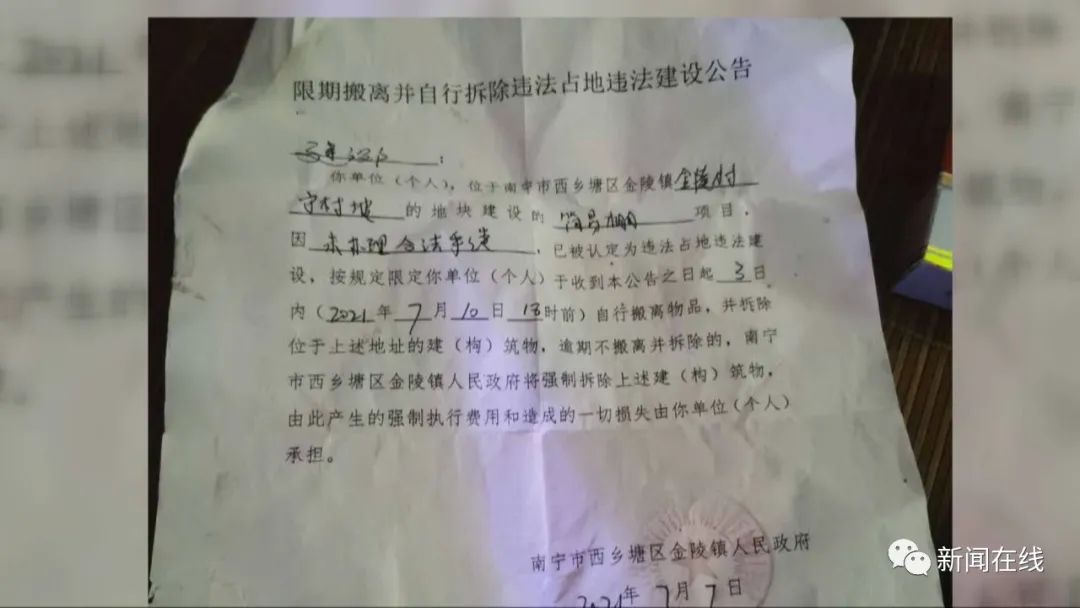 限期搬离并自行拆除违法占地违法建设公告
：
你单位（个人），位于南宁市西乡塘区金陵镇金陵村
宁村坡的地块建设的简易棚项目，
因未办理合法手续，已被认定为违法占地违法建
设，按规定限定你单位（个人）于收到本公告之日起3日
内（2021年7月10日18时前）自行搬离物品，并拆除
位于上述地址的建（构）筑物，逾期不搬离并拆除的，南宁
市西乡塘区金陵镇人民政府将强制拆除上述建（构）筑物，
由此产生的强制执行费用和造成的一切损失由你单位（个人）
承担。
南宁市西乡塘区金陵镇人民政府
2021年7月7日
新闻在线